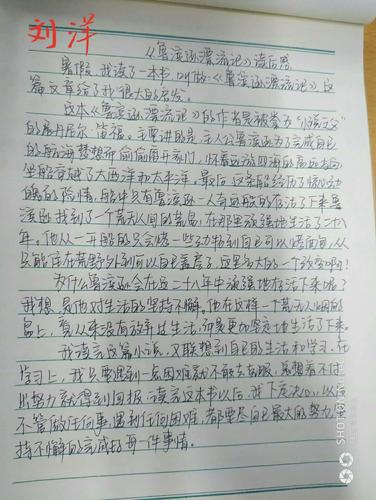 刘洋
《鲁滨逊漂流记》读后感
暑假,我读了一本书,叫做《鲁滨逊漂流记》这
篇文章给了我很大的启发。
这本《鲁滨逊漂流记》的作者是被誉为“小说之父”
的展丹尼尔·笛福。主要讲的是主人公鲁滨逊为了完成自己
的航海梦想而偷偷离开家门,怀着远游四海的高远志向
坐船穿越了大西洋和太平洋。最后这条船经历了惊心动
魄的险情,船中只有鲁滨逊一人奇迹般的存活了下来鲁
滨逊找到了个荒无人间的荒岛,在那里顽强地生活了二十八
年。他从一开始的只会烧一些动物到自己可以烤面包,从
只能住在荒野外到可以自己盖房子,这是多大的一个改变啊!
为什么鲁滨逊会在这二十八年中顽强地存活下来呢?
我想,是他对生活的坚持不懈。他在这样一个荒无人烟的
岛上,看从来没有放弃过生活,而是更加坚定地生活了下来。
我读完这篇小说,又联想到自己的生活和学习,在
学习上,我只要遇到一点困难就不敢去克服,总想着不付
出努力就得到回报。读完这本书以后,我下定决心,以后
不管做任何事,遇到任何困难,都要尽自己最大的努力坚
持不懈的完成好每一件事情。
SHOT ON